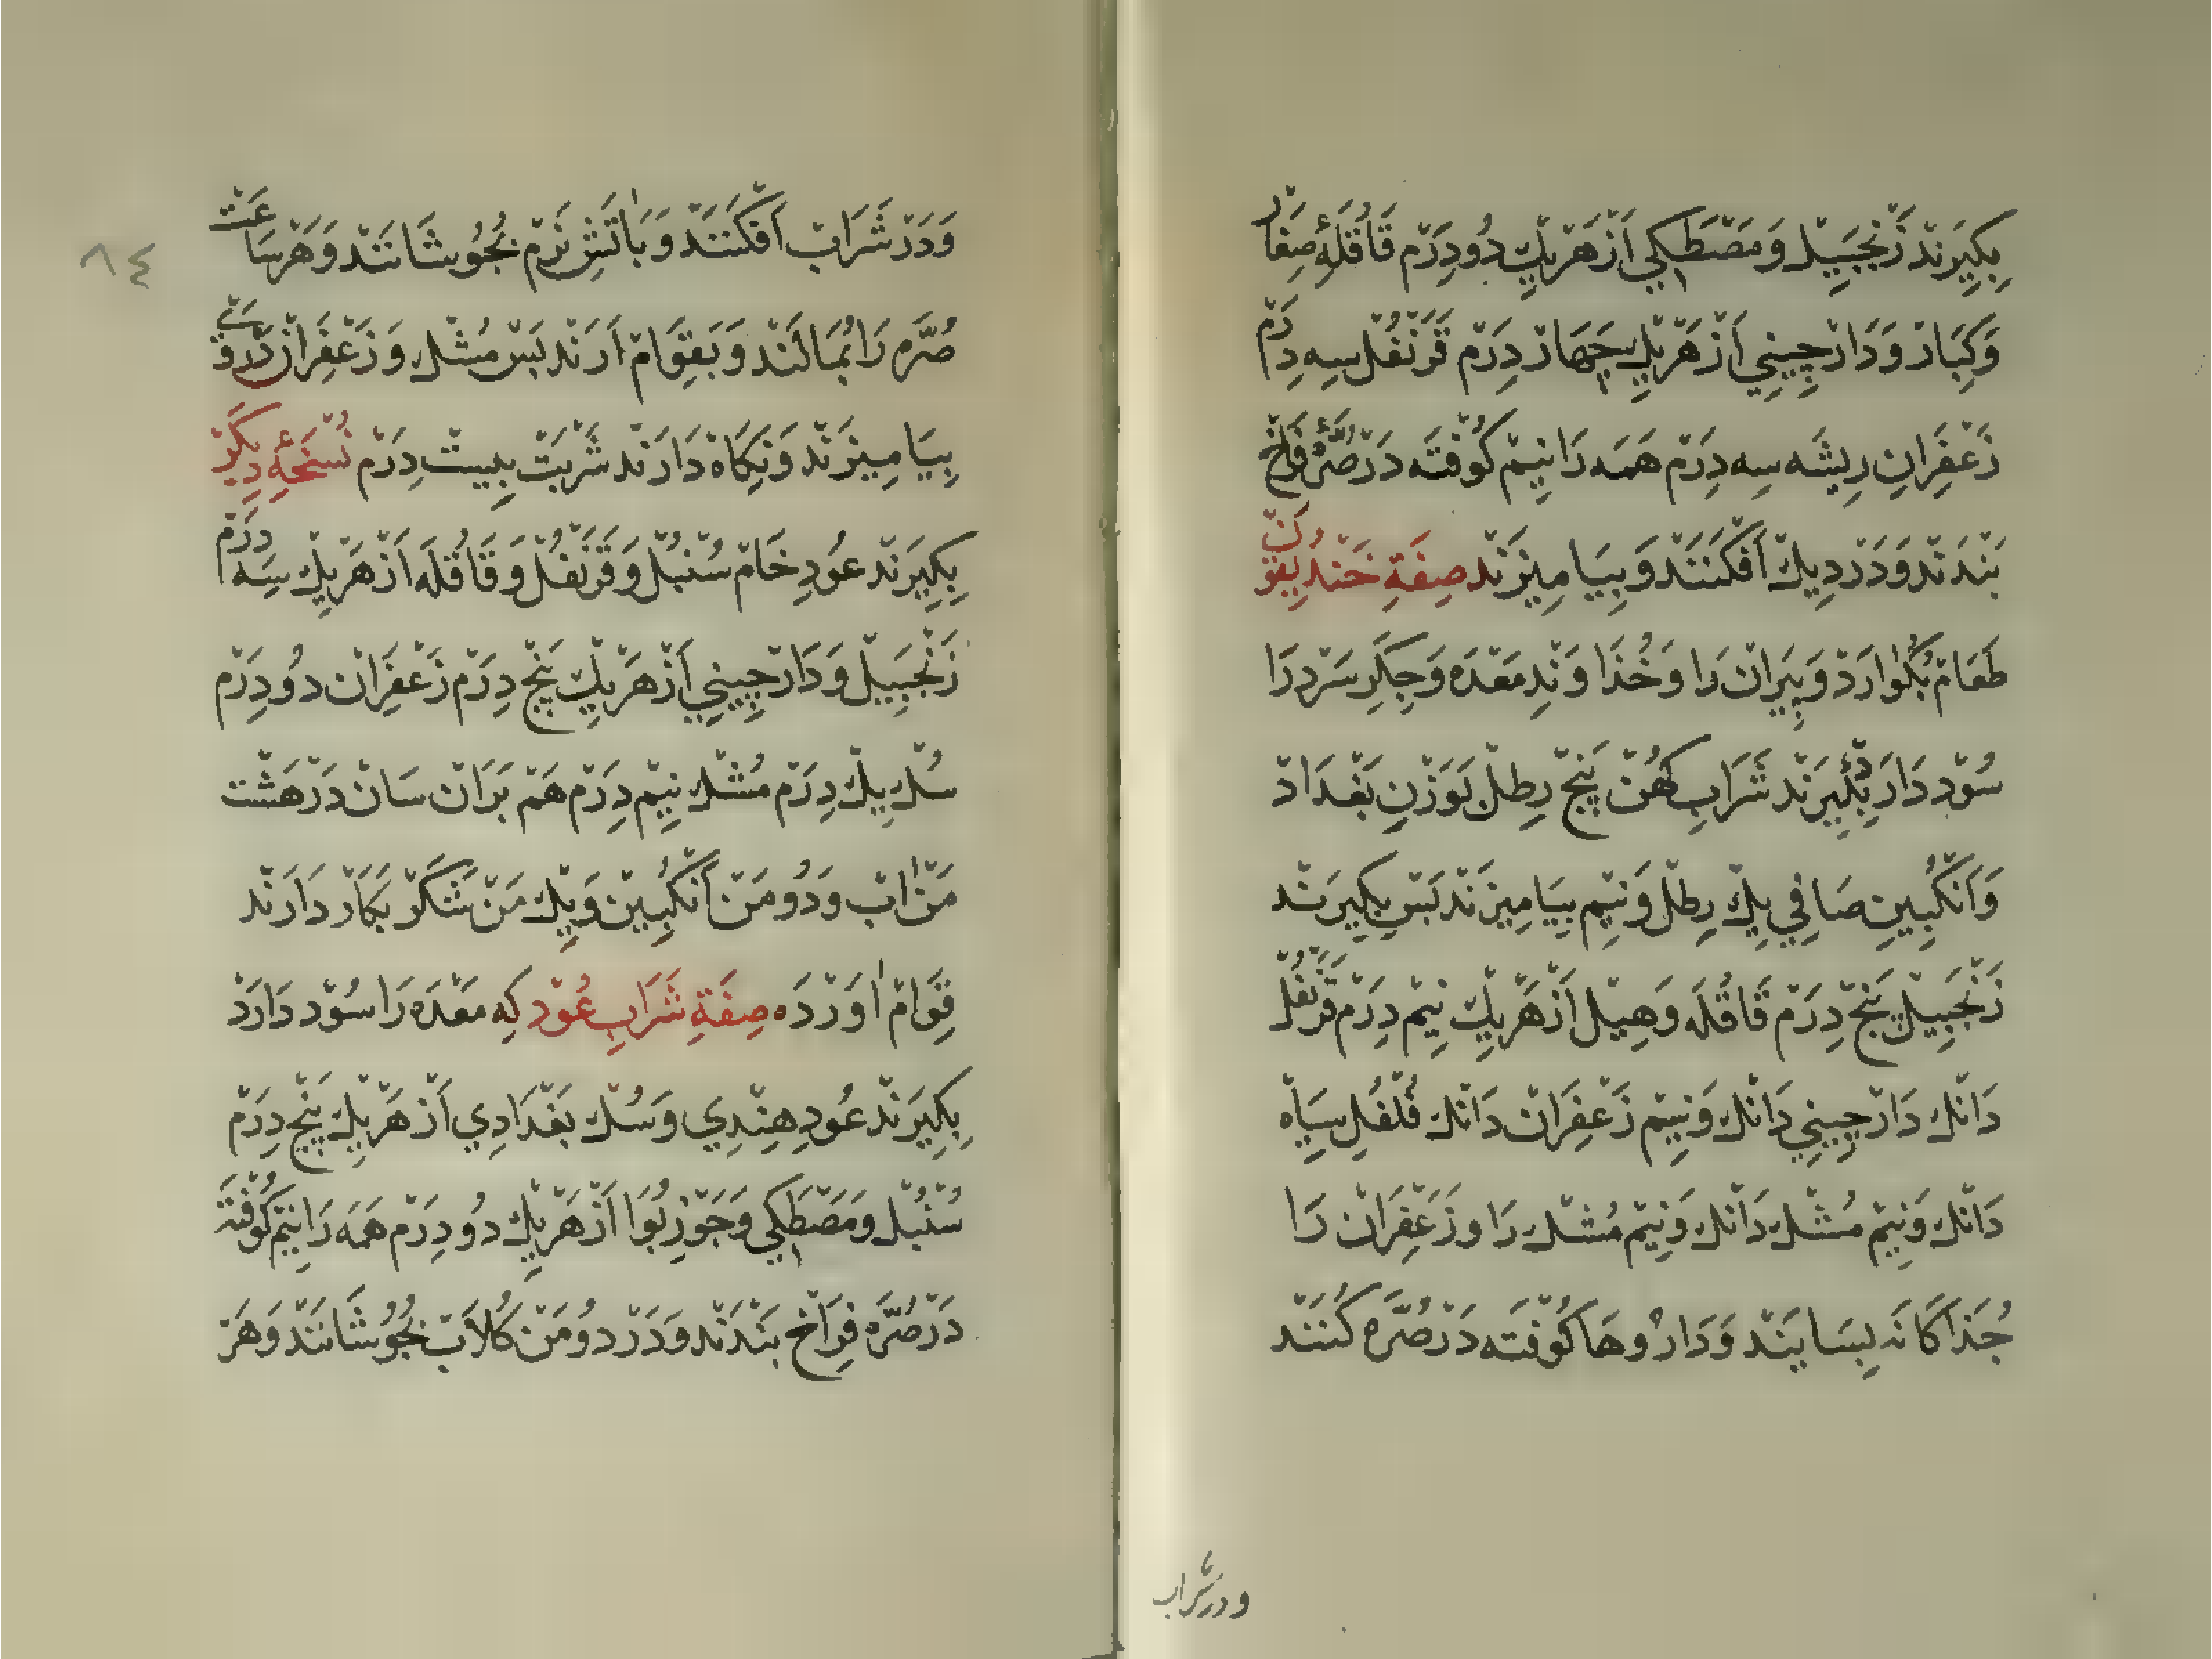 بِكِيَرنْد زَنْجَبِيلْ وَمَصْطَكِي اَزْ هَرْيِكْ دُودِرَمْ قَاقُلَهٔ صِغَارْ
وَكِبَارْ وَدَارْچِينِي اَزْ هَرْيِكْ چَهَارْ دِرَمْ قَرَنْفُلْ سِه دِرَمْ
زَعْفِرَانِ رِيشَه سِه دِرَمْ هَمَه رَا نِيمْ كُوفْتَه دَرْ صُرَّهٔ فَراخْ
بَنْدَنْد وَدَرْ دِيكْ اَفْكَنَنْد وَبِيَامِيزَنْد صِفَةِ خَنْدُيِقُونْ كَنْ
طَعَامْ بُكُوارَدْ وَپِيَرانْ رَا وَخُذَا وَنْدِ مَعْدَه وَجِكَرِ سَرْد رَا
سُوْد دَارَدْ بِكِيَرنْد شَرَابِ كُهُنْ پَنِجْ رِطلْ بَوَزْنِ بَغْدَادْ
وَاَنْكُبِينِ صَافِي يِكْ رِطلْ وَنِيمْ بِيَامِيزَنْد بَسْ بِكِيرَنْد
زَنْجَبِيلْ پَنِجْ دِرَمْ قَاقُلَه وَهِيلْ اَزْ هَرْيِكْ نِيمْ دِرَمْ قَرَنْفُلْ
دَانْك دَارْچِينِي دَانْك وَنِيمْ زَعْفِرَانْ دَانْك فُلْفُلِ سِيَاه
دَانْك وَنِيمْ مُشْك دَانْك وَنِيمْ مُشْك رَا وزَعْفِرَانْ رَا
جُذَاكَانَه بِسَايَنْد وَدَارُوهَا كُوفْتَه دَرْ صُرَّه كُنَنْد
ودرشراب
٨٤
وَدَرْ شَرَابْ اَفْكَنَنْد وَبَاٰتَشِ نَرْم بُجُوشَانَنْد وَهَرْسَاعَتْ
صُرَّه رَا بُمَالَنْد وَبَقِوَامْ اَرَنْد بَسْ مُشْك وَزَعْفِرَانْ دَرْوَيْ
بِيَامِيزَنْد وَنِكَاهْ دَارَنْد شَرْبَتْ بِيِسْت دِرَمْ نُسْخَهٔ دِيكَرْ
بِكِيَرنْد عُودِ خَامْ سُنْبُلْ وَقَرَنْفُلْ وَقَاقُلَه اَزْ هَرْيِكْ سِه دِرَمْ
زَنْجَبِيلْ وَدَارْچِينِي اَزْ هَرْيِكْ پَنِجْ دِرَمْ زَعْفِرَانْ دودِرَمْ
سُكْ يِكْ دِرَمْ مُشْك نِيمْ دِرَمْ هَمْ بَرَانْ سَانْ دَرْ هَشْت
مَنْ اٰبْ وَدُو مَنْ اَنْكُبِينْ وَيِكْ مَنْ شَكَرْ بَكَارْ دَارَنْد
قِوَامْ اٰوَرْدَه صِفَةِ شَرَابِ عُوْد كِه مَعْدَه رَا سُوْد دَارَدْ
بِكِيَرنْد عُودِ هِنْدِي وَسُكْ بَغْدَادِي اَزْ هَرْيِكْ پَنِجْ دِرَمْ
سُنْبُلْ وَمَصْطَكِي وَجَوْزِبُوَا اَزْ هَرْيِكْ دُودِرَمْ هَمَه رَا نِيمْ كُوفْتَه
دَرْ صُرَّه فِرَاخْ بَنْدَنْد وَدَرْ دُومَنْ كُلاَبْ بُجُوشَانَنْد وَهَرْ